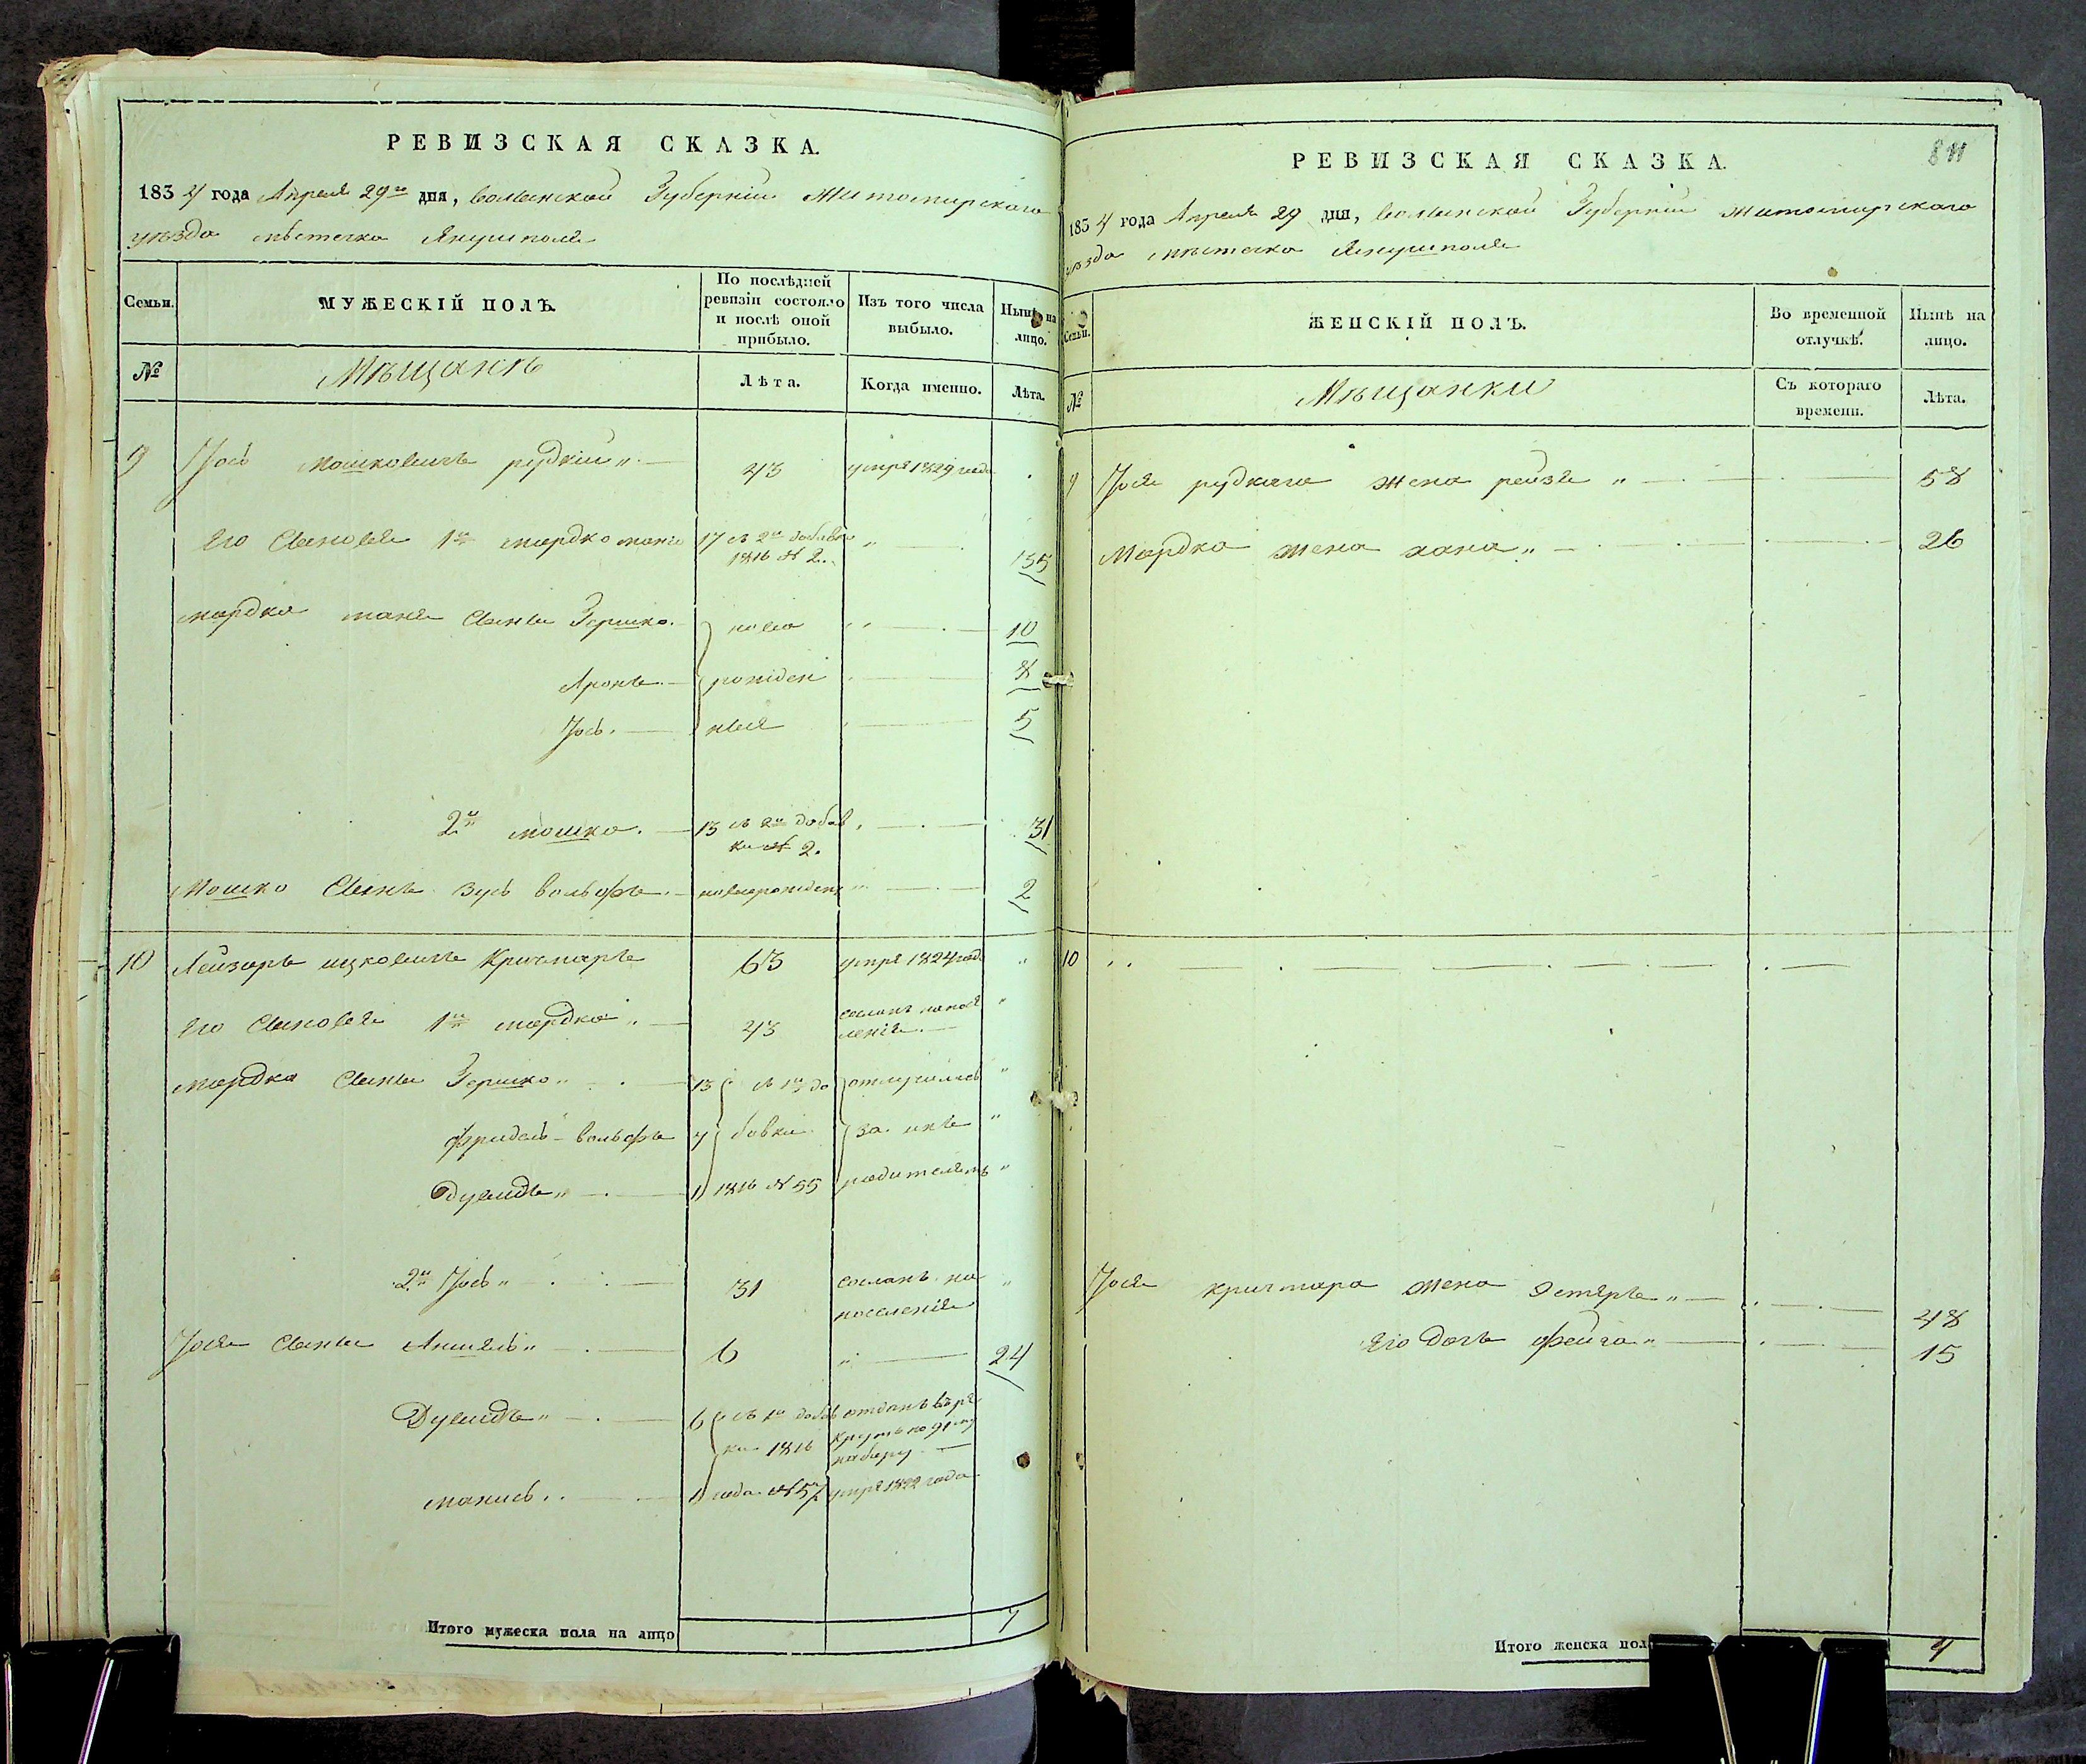 РЕВИЗСКАЯ СКАЗКА.
1834 года Апреля 29го дня, волынской Губерніи Житомирского
уѣзда мѣстечка Янушполя
Семьи.
МУЖЕСКІЙ ПОЛЪ.
По послѣдней ревизіи состояло и послѣ оной прибыло.
Изъ того числа выбыло.
Нынѣ на лицо.
№
Мѣщанъ
Лѣта.
Когда именно.
Лѣта.
9 Іось Мошковичъ рудкій 43 умре 1829 года
Его Сыновья 1й мордко 17 35
1816 № 2.
мордка Сыны Гершко ново 10
Аронъ рожден 8
Іось ныя 5
2й мошко 13 31
ки № 2.
Мошко Сынъ зусь вольфъ новорожден 2
10 Лейзоръ ицковичъ Кричмаръ 63 умре 1824 года
Его Сыновья 1й мордко 43 сосланъ на посе
ленія
мордка Сыны Гершко 13 съ 1й до отлучились
фридель-вольфъ 4 бавки за ихъ
Дувидъ 1 1816 № 55 родителемъ
2й Іось 31 сосланъ на
поселенія
Іося Сыны Аншель 6 24
Дувидъ 6 съ 1й добав отданъ въ ре
ки 1816 круты по 91му
набору
монись 1 года № 57 умре 1822 года
Итого мужеска пола на лицо 7
811
РЕВИЗСКАЯ СКАЗКА.
1834 года Апреля 29 дня, волынской Губерніи житомирского
уѣзда мѣстечка Янушполя
Семьи.
ЖЕНСКІЙ ПОЛЪ.
Во временной отлучкѣ.
Нынѣ на лицо.
№
Мѣщанки
Съ котораго времени.
Лѣта.
9 Іося рудкаго жена рейзя 58
Мордка жена хана 26
10
Іося кричмара жена Эстеръ 48
Его дочь фейга 15
Итого женска пол 4